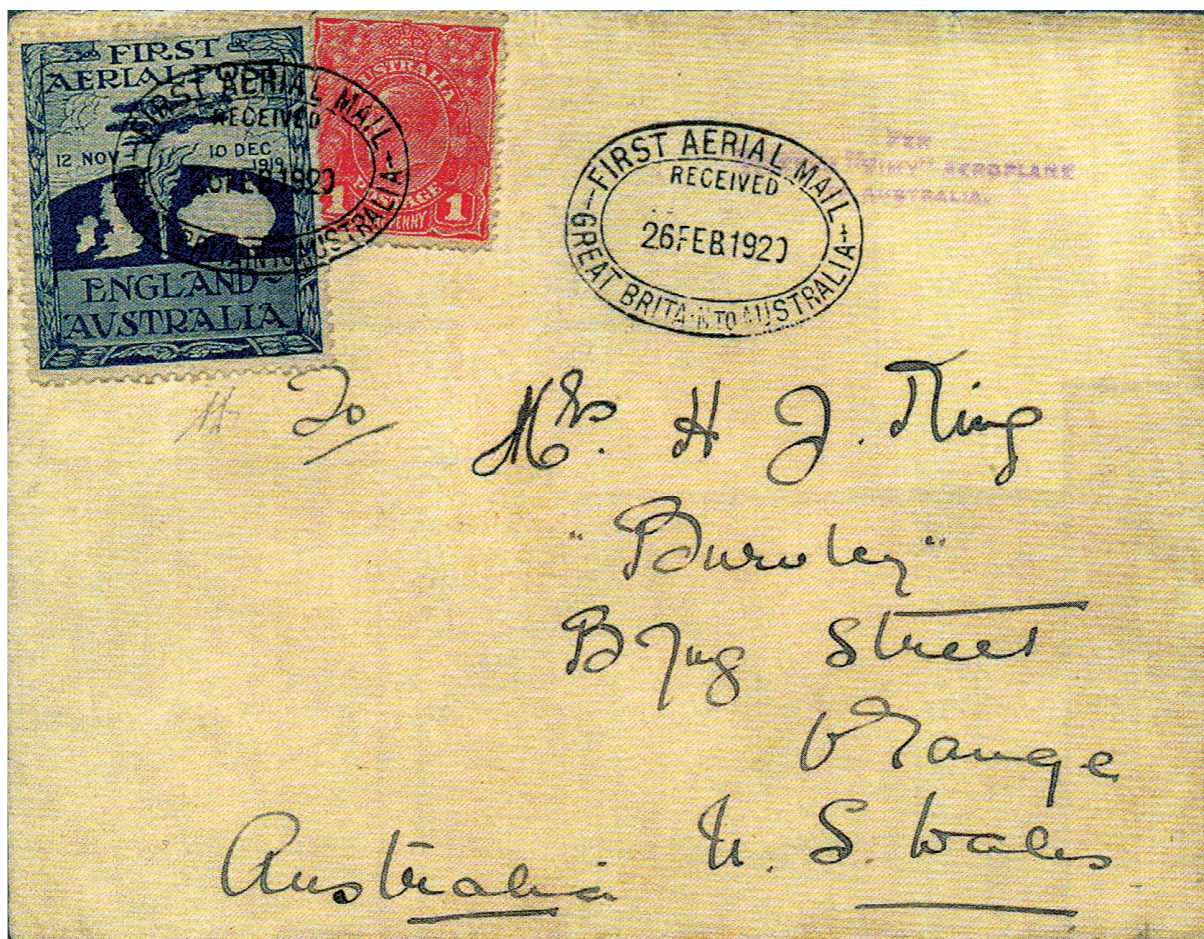 FIRST
AERIAL POST
12 NOV 10 DEC
1919
ENGLAND-
AUSTRALIA
AUSTRALIA
1 POSTAGE 1
PENNY
FIRST AERIAL MAIL
RECEIVED
26 FEB 1920
GREAT BRITAIN TO AUSTRALIA
FIRST AERIAL MAIL
RECEIVED
26 FEB 1920
GREAT BRITAIN TO AUSTRALIA
PER
"VIMY" AEROPLANE
AUSTRALIA.
To
Mrs. H J. King
"Burnley"
Byng Street
Orange
N. S. Wales
Australia